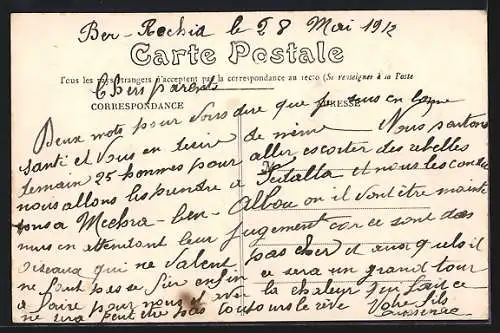 Ber-Rechid le 28 Mai 1912
Carte Postale
Tous les pays étrangers n'acceptent pas la correspondance au recto (Se renseigner à la Poste
Chers parents
CORRESPONDANCE ADRESSE
Deux mots pour vous dire que je suis en bonne
santé et vous en désire de même Nous partons
demain 25 hommes pour aller escorter des rebelles
nous allons les prendre à Settatta et nous les condui
sons a Mechra-ben-Abbou on il vont être mainte
nus en attendant leur jugement car ce sont des
oiseaux qui ne valent pas cher et aussi qu'els il
ne font pas se fier enfin ce sera un grand tour
a faire pour nous et avec la chaleur qui fait ce
ne sera peut être pas toutours le rêve Votre fils